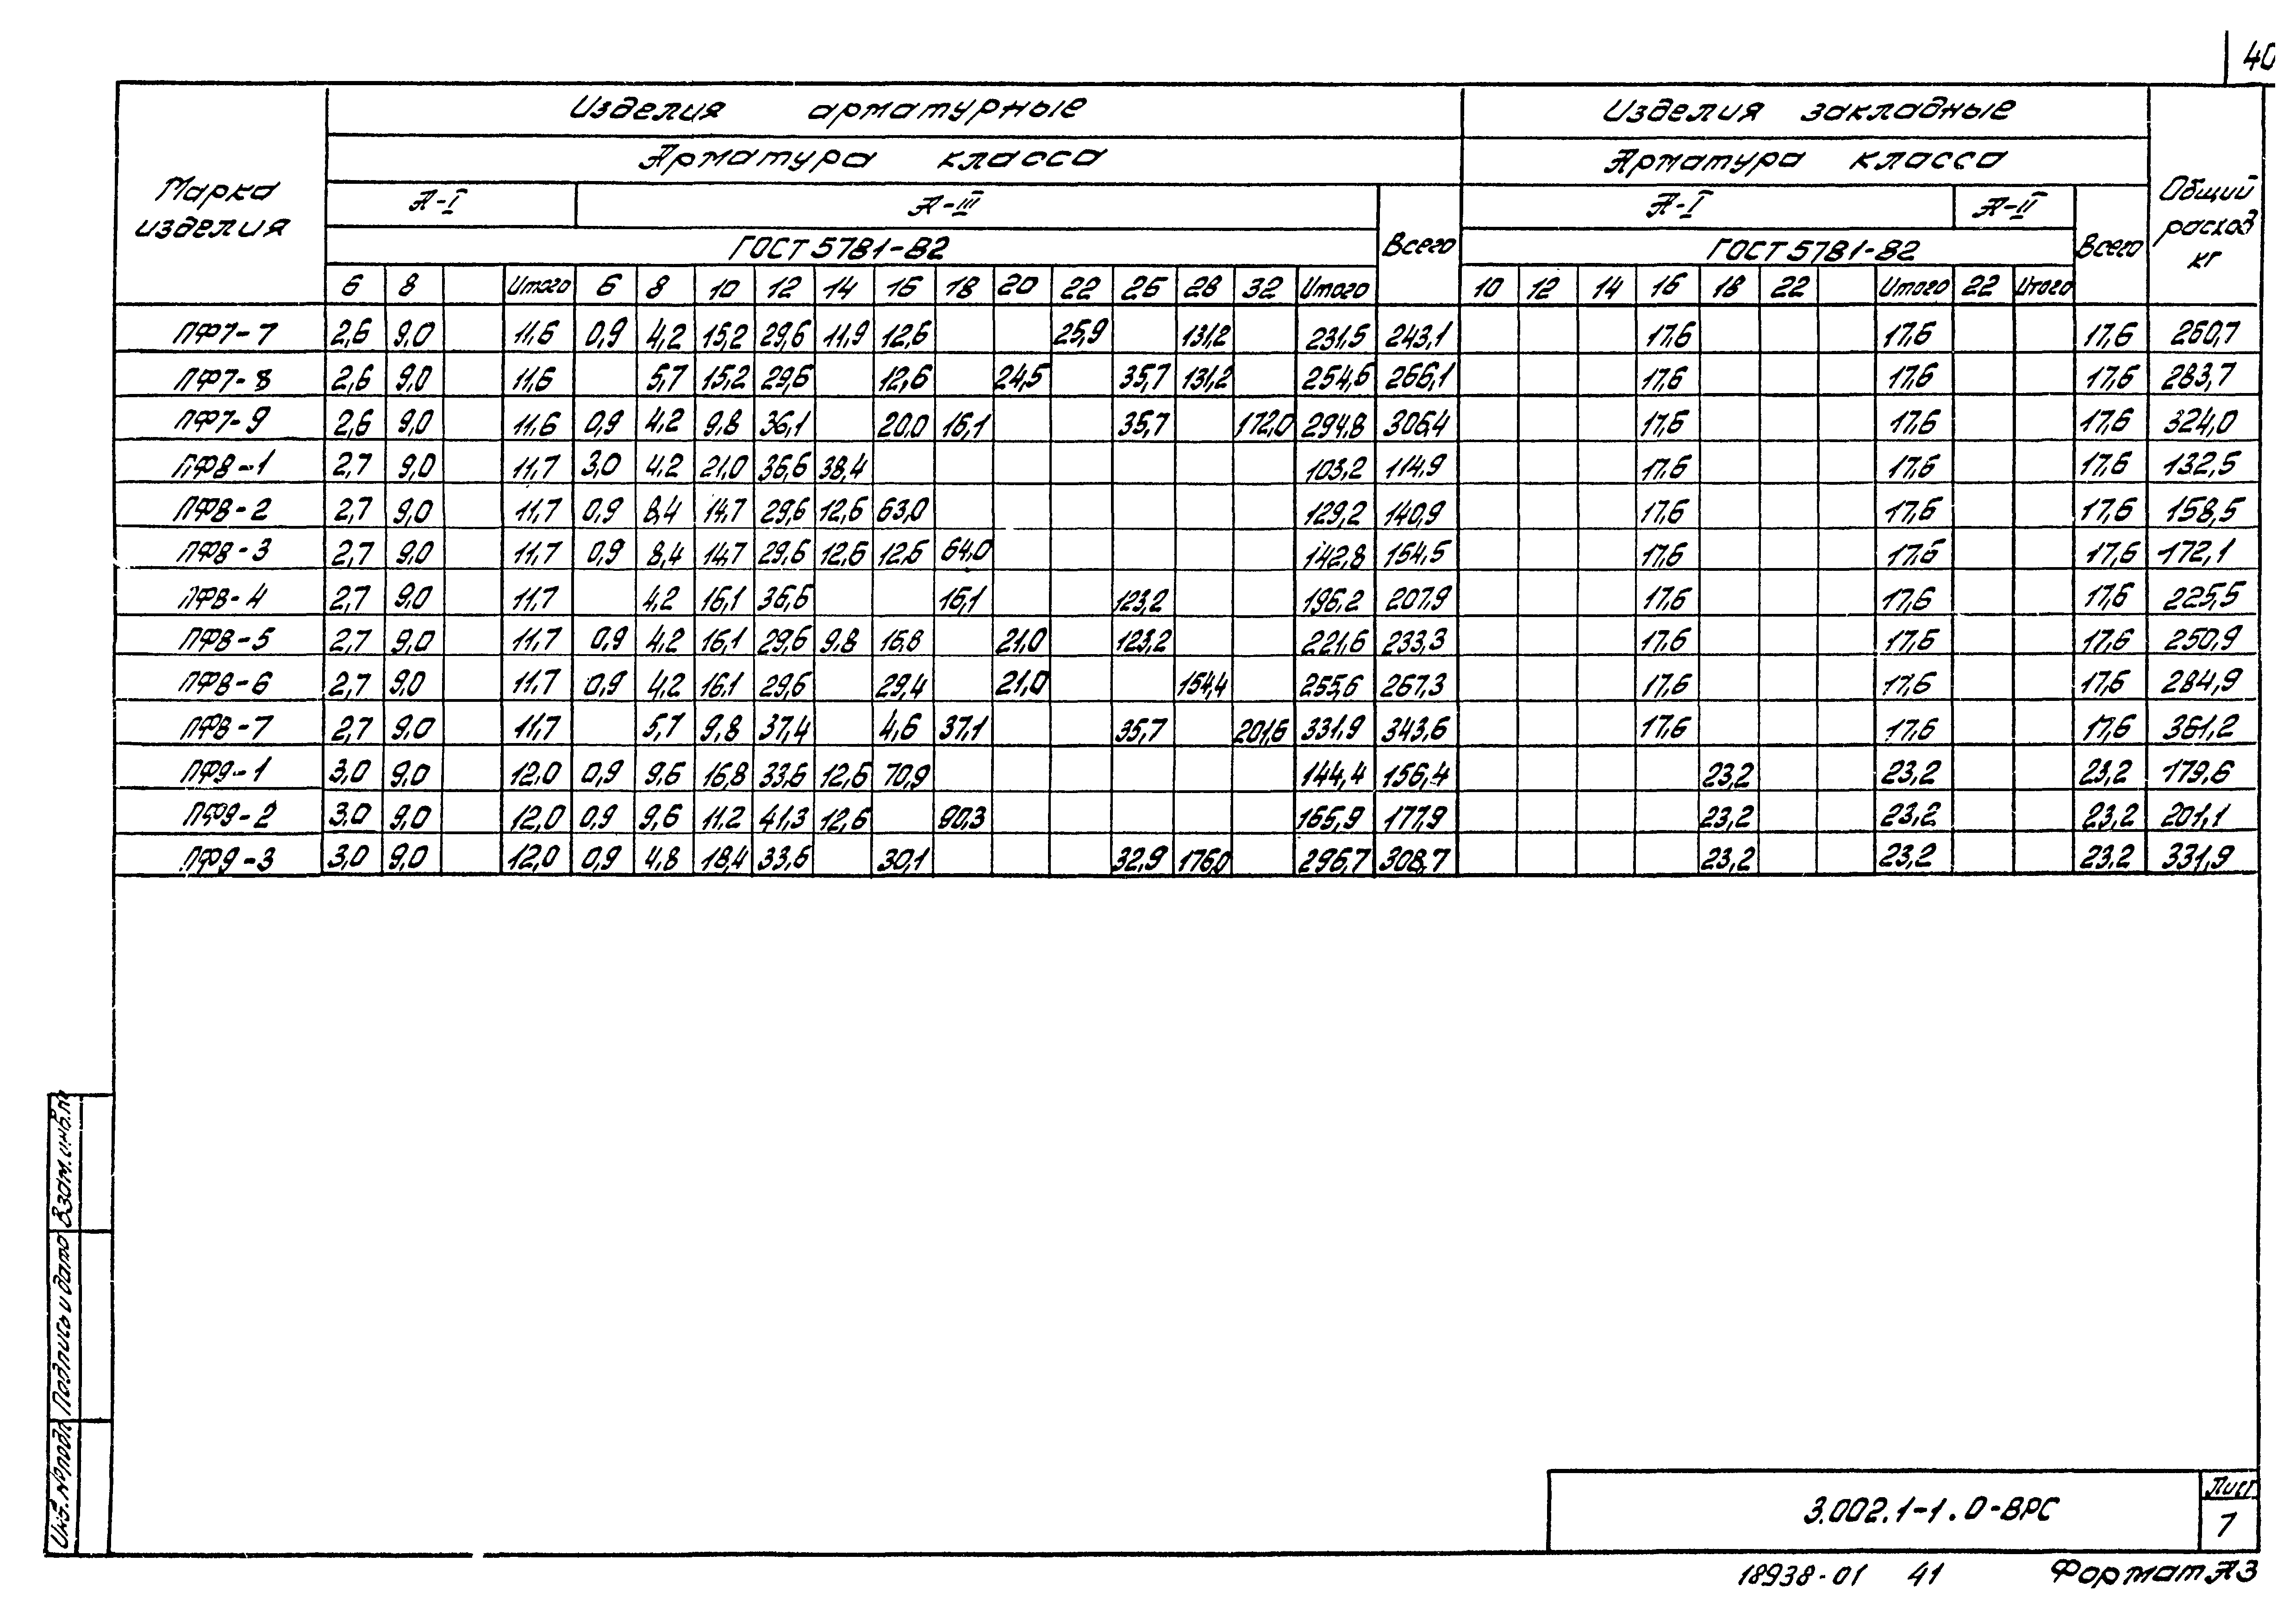 40
Марка изделия
Изделия арматурные
Изделия закладные
Общий расход кг
Арматура класса
Арматура класса
А-I А-III Всего А-I А-II Всего
ГОСТ 5781-82 ГОСТ 5781-82
6 8 Итого 6 8 10 12 14 16 18 20 22 25 28 32 Итого 10 12 14 16 18 22 Итого 22 Итого
ПФ7-7 2,6 9,0 11,6 0,9 4,2 15,2 29,6 11,9 12,6 25,9 131,2 231,5 243,1 17,6 17,6 17,6 260,7
ПФ7-8 2,6 9,0 11,6 5,7 15,2 29,6 12,6 24,5 35,7 131,2 254,6 266,1 17,6 17,6 17,6 283,7
ПФ7-9 2,6 9,0 11,6 0,9 4,2 9,8 36,1 20,0 16,1 35,7 172,0 294,8 306,4 17,6 17,6 17,6 324,0
ПФ8-1 2,7 9,0 11,7 3,0 4,2 21,0 36,6 38,4 103,2 114,9 17,6 17,6 17,6 132,5
ПФ8-2 2,7 9,0 11,7 0,9 8,4 14,7 29,6 12,6 63,0 129,2 140,9 17,6 17,6 17,6 158,5
ПФ8-3 2,7 9,0 11,7 0,9 8,4 14,7 29,6 12,6 12,6 64,0 142,8 154,5 17,6 17,6 17,6 172,1
ПФ8-4 2,7 9,0 11,7 4,2 16,1 36,6 16,1 123,2 196,2 207,9 17,6 17,6 17,6 225,5
ПФ8-5 2,7 9,0 11,7 0,9 4,2 16,1 29,6 9,8 16,8 21,0 123,2 221,6 233,3 17,6 17,6 17,6 250,9
ПФ8-6 2,7 9,0 11,7 0,9 4,2 16,1 29,6 29,4 21,0 154,4 255,6 267,3 17,6 17,6 17,6 284,9
ПФ8-7 2,7 9,0 11,7 5,7 9,8 37,4 4,6 37,1 35,7 201,6 331,9 343,6 17,6 17,6 17,6 361,2
ПФ9-1 3,0 9,0 12,0 0,9 9,6 16,8 33,6 12,6 70,9 144,4 156,4 23,2 23,2 23,2 179,6
ПФ9-2 3,0 9,0 12,0 0,9 9,6 11,2 41,3 12,6 90,3 165,9 177,9 23,2 23,2 23,2 201,1
ПФ9-3 3,0 9,0 12,0 0,9 4,8 18,4 33,6 30,1 32,9 176,0 296,7 308,7 23,2 23,2 23,2 331,9
Взам. инв. №
Подпись и дата
Инв. № подл.
3.002.1-1.0-ВРС
Лист
7
18938-01 41 Формат А3